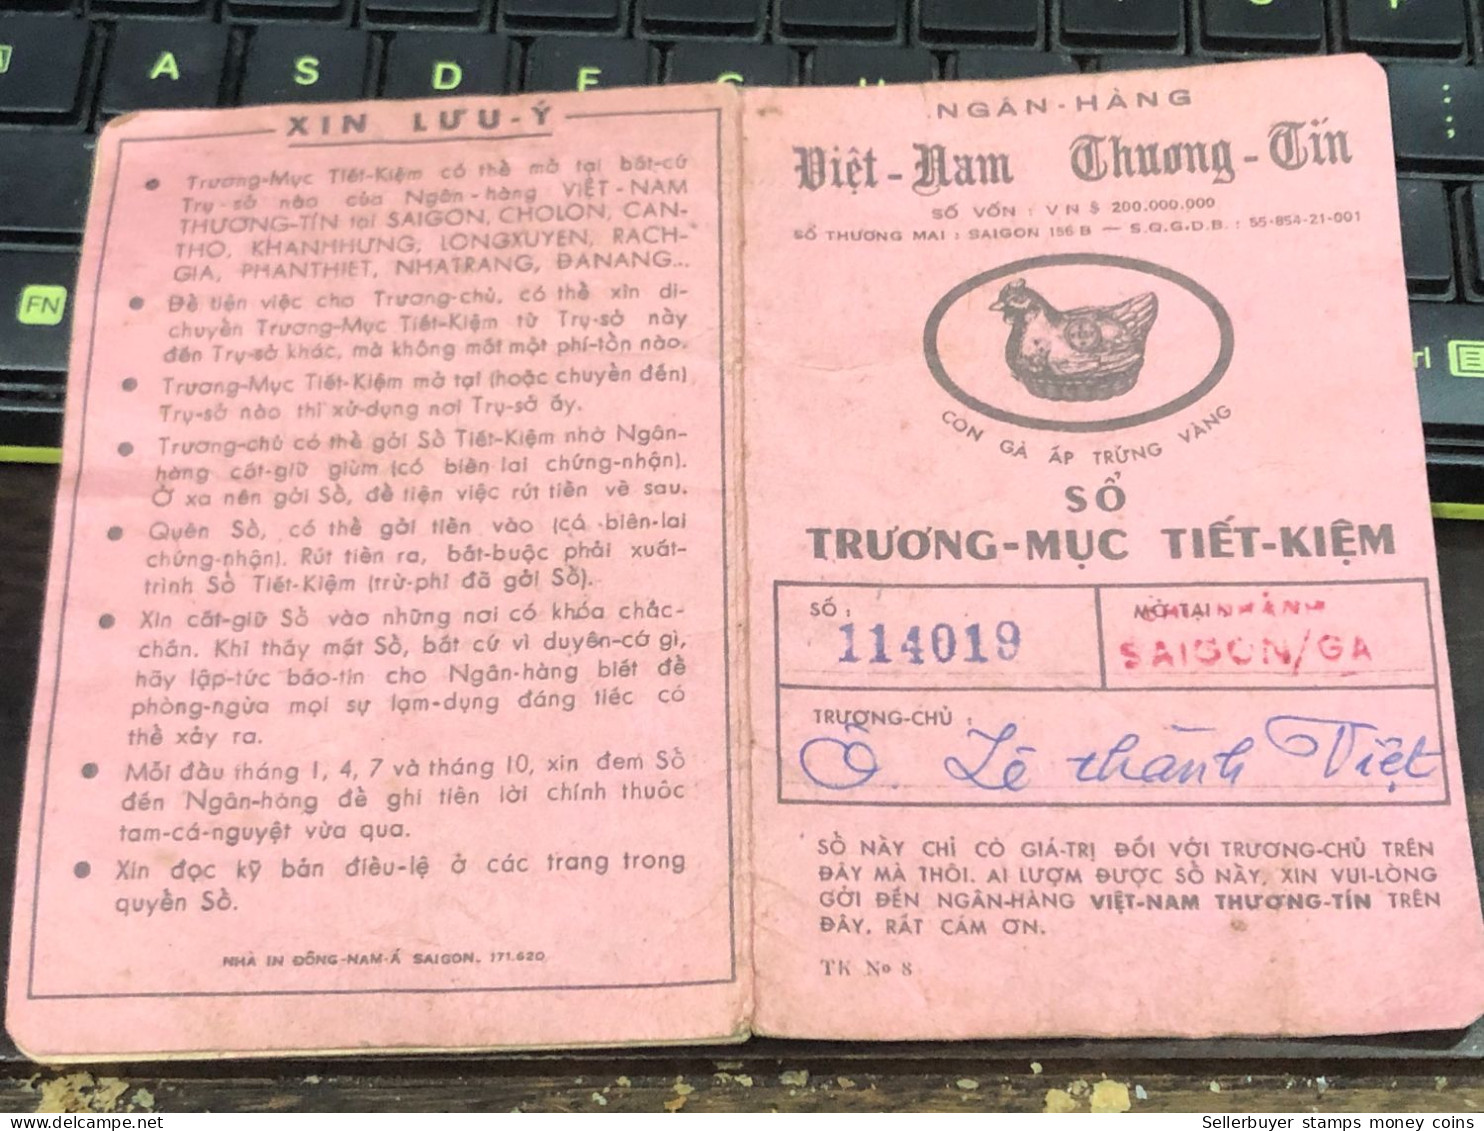 A S D F
FN
XIN LƯU-Ý
• Trương-Mục Tiết-Kiệm có thể mở tại bất-cứ
Trụ-sở nào của Ngân-hàng VIỆT-NAM
THƯƠNG-TÍN tại SAIGON, CHOLON, CAN-
THO, KHANHHƯNG, LONGXUYEN, RACH-
GIA, PHANTHIET, NHATRANG, ĐANANG...
• Để tiện việc cho Trương-chủ, có thể xin di-
chuyển Trương-Mục Tiết-Kiệm từ Trụ-sở này
đến Trụ-sở khác, mà không mất một phí-tổn nào.
• Trương-Mục Tiết-Kiệm mở tại (hoặc chuyển đến)
Trụ-sở nào thì xử-dụng nơi Trụ-sở ấy.
• Trương-chủ có thể gởi Sổ Tiết-Kiệm nhờ Ngân-
hàng cất-giữ giùm (có biên lai chứng-nhận).
Ở xa nên gởi Sổ, để tiện việc rút tiền về sau.
• Quên Sổ, có thể gởi tiền vào (có biên-lai
chứng-nhận). Rút tiền ra, bắt-buộc phải xuất-
trình Sổ Tiết-Kiệm (trừ-phi đã gởi Sổ).
• Xin cất-giữ Sổ vào những nơi có khóa chắc-
chắn. Khi thấy mất Sổ, bất cứ vì duyên-cớ gì,
hãy lập-tức báo-tin cho Ngân-hàng biết để
phòng-ngừa mọi sự lạm-dụng đáng tiếc có
thể xảy ra.
• Mỗi đầu tháng 1, 4, 7 và tháng 10, xin đem Sổ
đến Ngân-hàng để ghi tiền lời chính thuộc
tam-cá-nguyệt vừa qua.
• Xin đọc kỹ bản điều-lệ ở các trang trong
quyển Sổ.
NHÀ IN ĐÔNG-NAM-Á SAIGON. 171.620
NGÂN-HÀNG
Việt-Nam Thương-Tín
SỐ VỐN : VN $ 200.000.000
SỐ THƯƠNG MẠI : SAIGON 156 B — S.Q.G.D.B. : 55-854-21-001
CON GÀ ẤP TRỨNG VÀNG
SỔ
TRƯƠNG-MỤC TIẾT-KIỆM
SỐ : 114019
MỞ TẠI CHI NHÁNH
SAIGON/GA
TRƯƠNG-CHỦ :
Ô. Lê thành Việt
SỔ NÀY CHỈ CÓ GIÁ-TRỊ ĐỐI VỚI TRƯƠNG-CHỦ TRÊN
ĐÂY MÀ THÔI. AI LƯỢM ĐƯỢC SỔ NÀY, XIN VUI-LÒNG
GỞI ĐẾN NGÂN-HÀNG VIỆT-NAM THƯƠNG-TÍN TRÊN
ĐÂY. RẤT CÁM ƠN.
TK No 8
Sellerbuyer stamps money coins